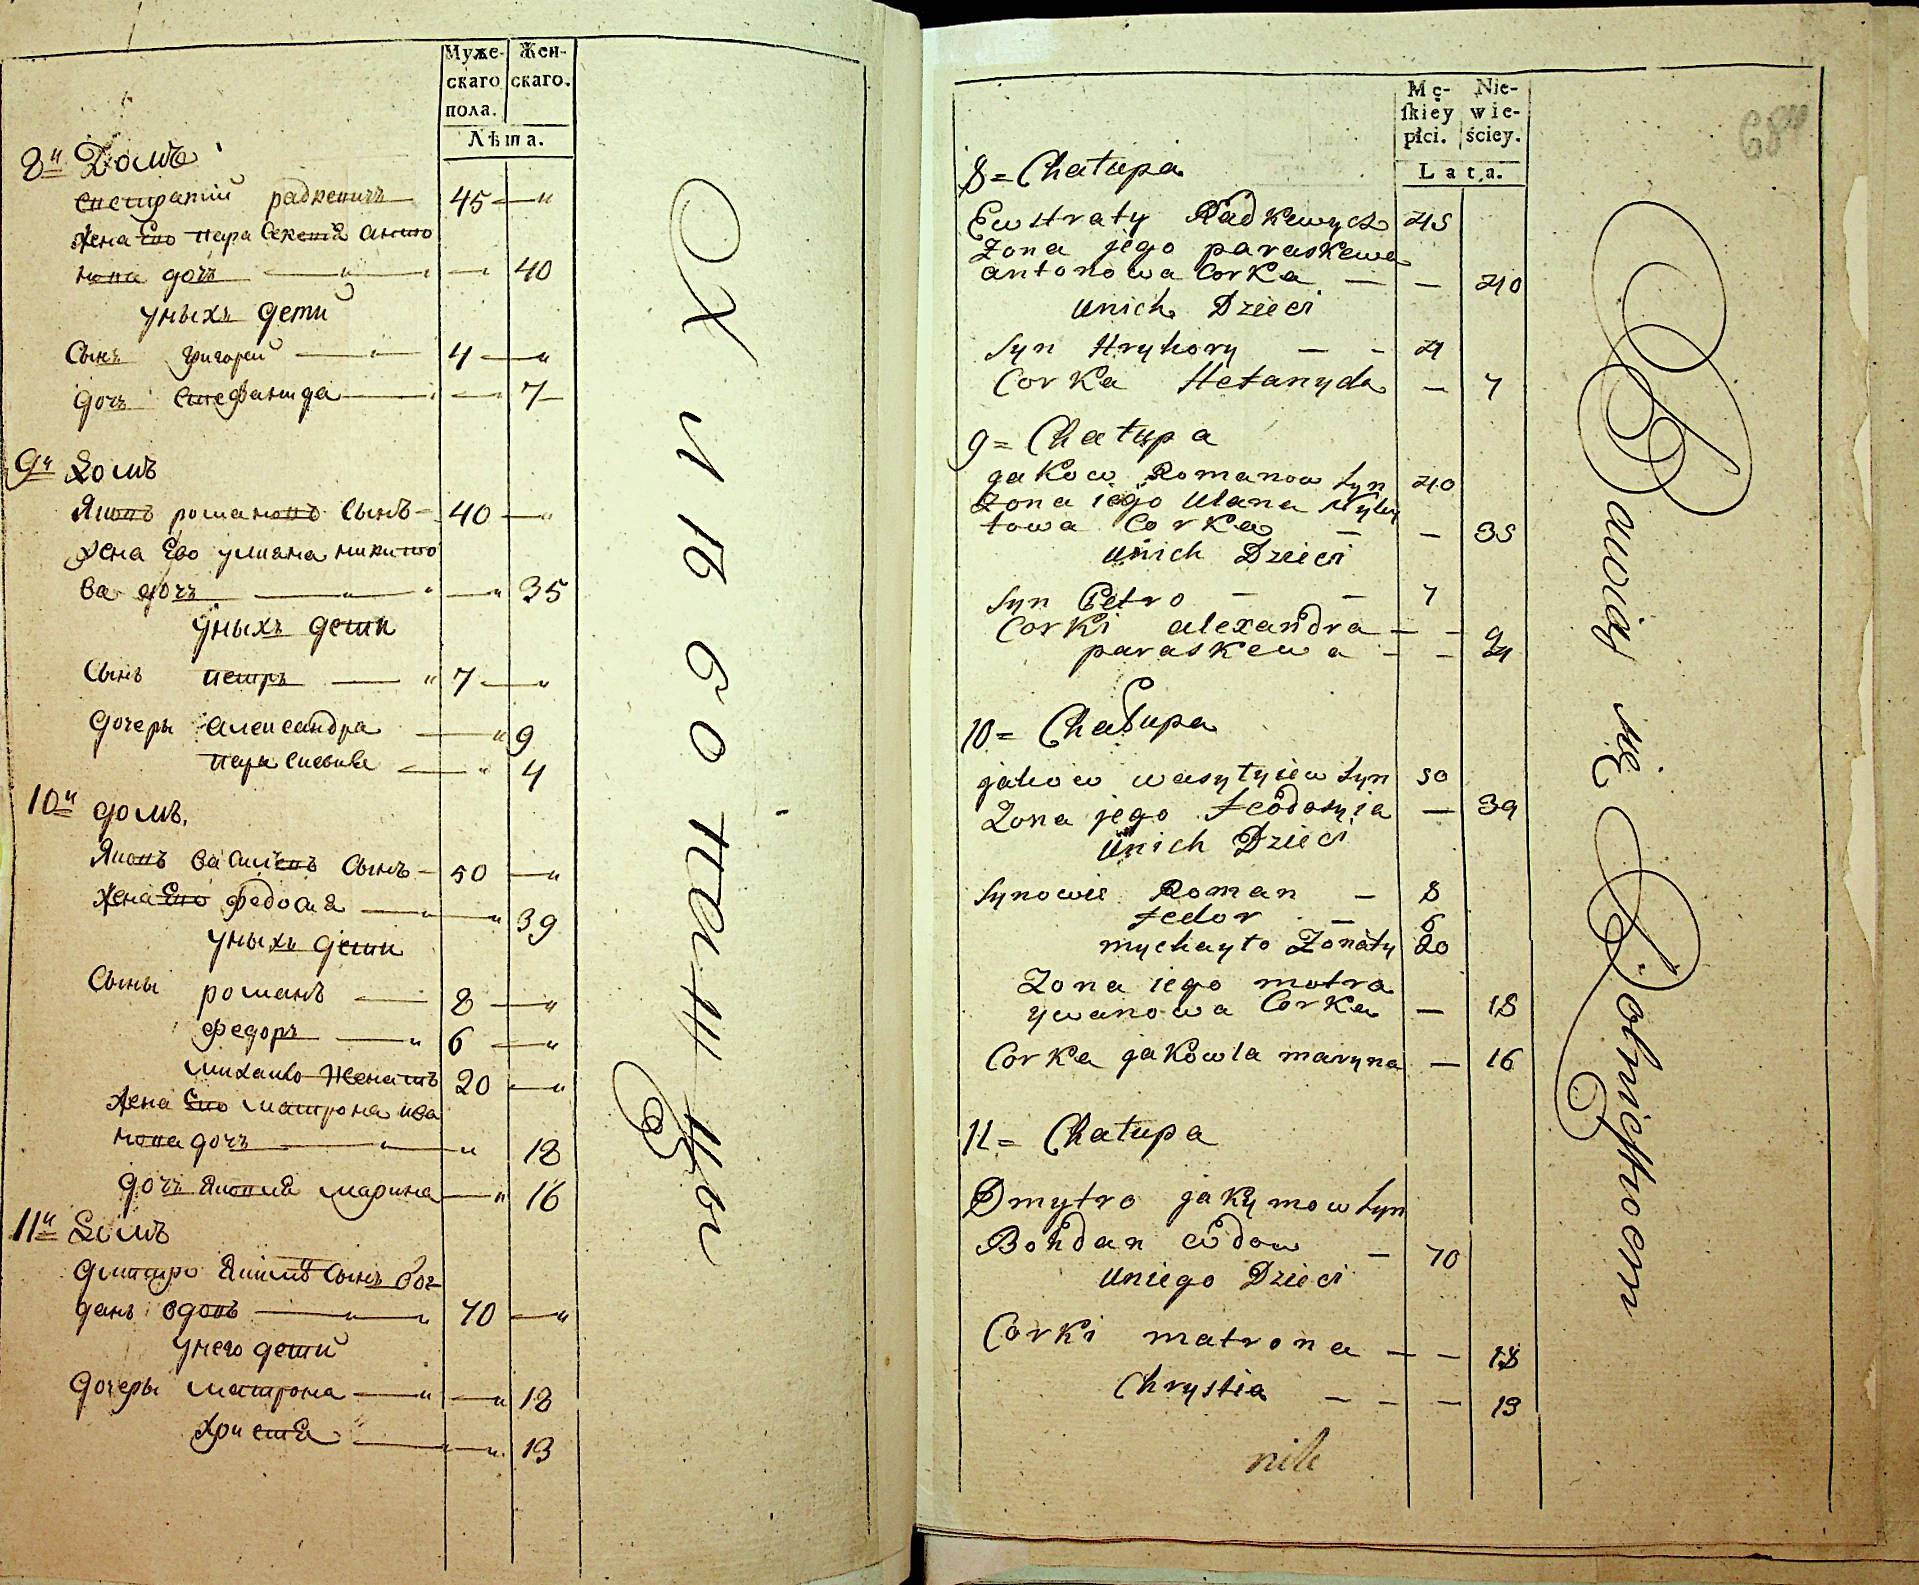 Муже- Жен-
скаго скаго.
пола.
Лѣта.
8й Домъ
евстратий радкевичъ 45 — "
жена Ево параскевия анто
нова дочъ — " — 40
уныхъ дети
Сынъ григорей — " 4 — "
дочъ стефанида — — 7
9й Домъ
Яковъ романовъ Сынъ — 40 — "
жена Ево улияна никито
ва дочъ — " — " 35
уныхъ дети
Сынъ петръ — " 7 — "
дочеры александра — " 9
параскевия — " 4
10й домъ.
Яковъ василевъ Сынъ — 50 — "
жена Ево федосия — " — " 39
уныхъ дети
Сыны романъ — 8 — "
федоръ — " 6 — "
михайло женатъ 20 — "
жена Ево матрона ива
нова дочъ — " — " 18
дочъ яковля марина — " 16
11й Домъ
дмитро якимовъ Сынъ бог
данъ вдовъ — " — " 70 — "
унего дети
дочеры матрона — " — " 18
христя " — " — " 13
Животашцы
Mę- Nie-
ſkiey wie-
płci. ściey.
Lata.
68
8 = Chałupa
Ewstraty Radkewycz 45
Zona jego paraskewa
antonowa Corka — — 40
Unich Dzieci
Syn Hryhory — - 4
Corka Stefanyda — 7
9 = Chałupa
jakow Romanow Syn 40
Zona iego Ulana Myky
towa Corka — — 35
Unich Dzieci
Syn Petro — — 7
Corki alexandra — — 9
paraskewa — — 4
10 = Chałupa
jakow wasyłyiew Syn 50
Zona jego feodosyia — 39
Unich Dzieci
Synowie Roman — 8
fedor — 6
mychayło Zonaty 20
Zona iego motra
ywanowa Corka — 18
Corka jakowla maryna — 16
11 = Chałupa
Dmytro jakymow Syn
Bohdan wdow — 70
Uniego Dzieci
Corki matrona — — 18
Chrystia — - — 13
Bawią się Rolnictwem